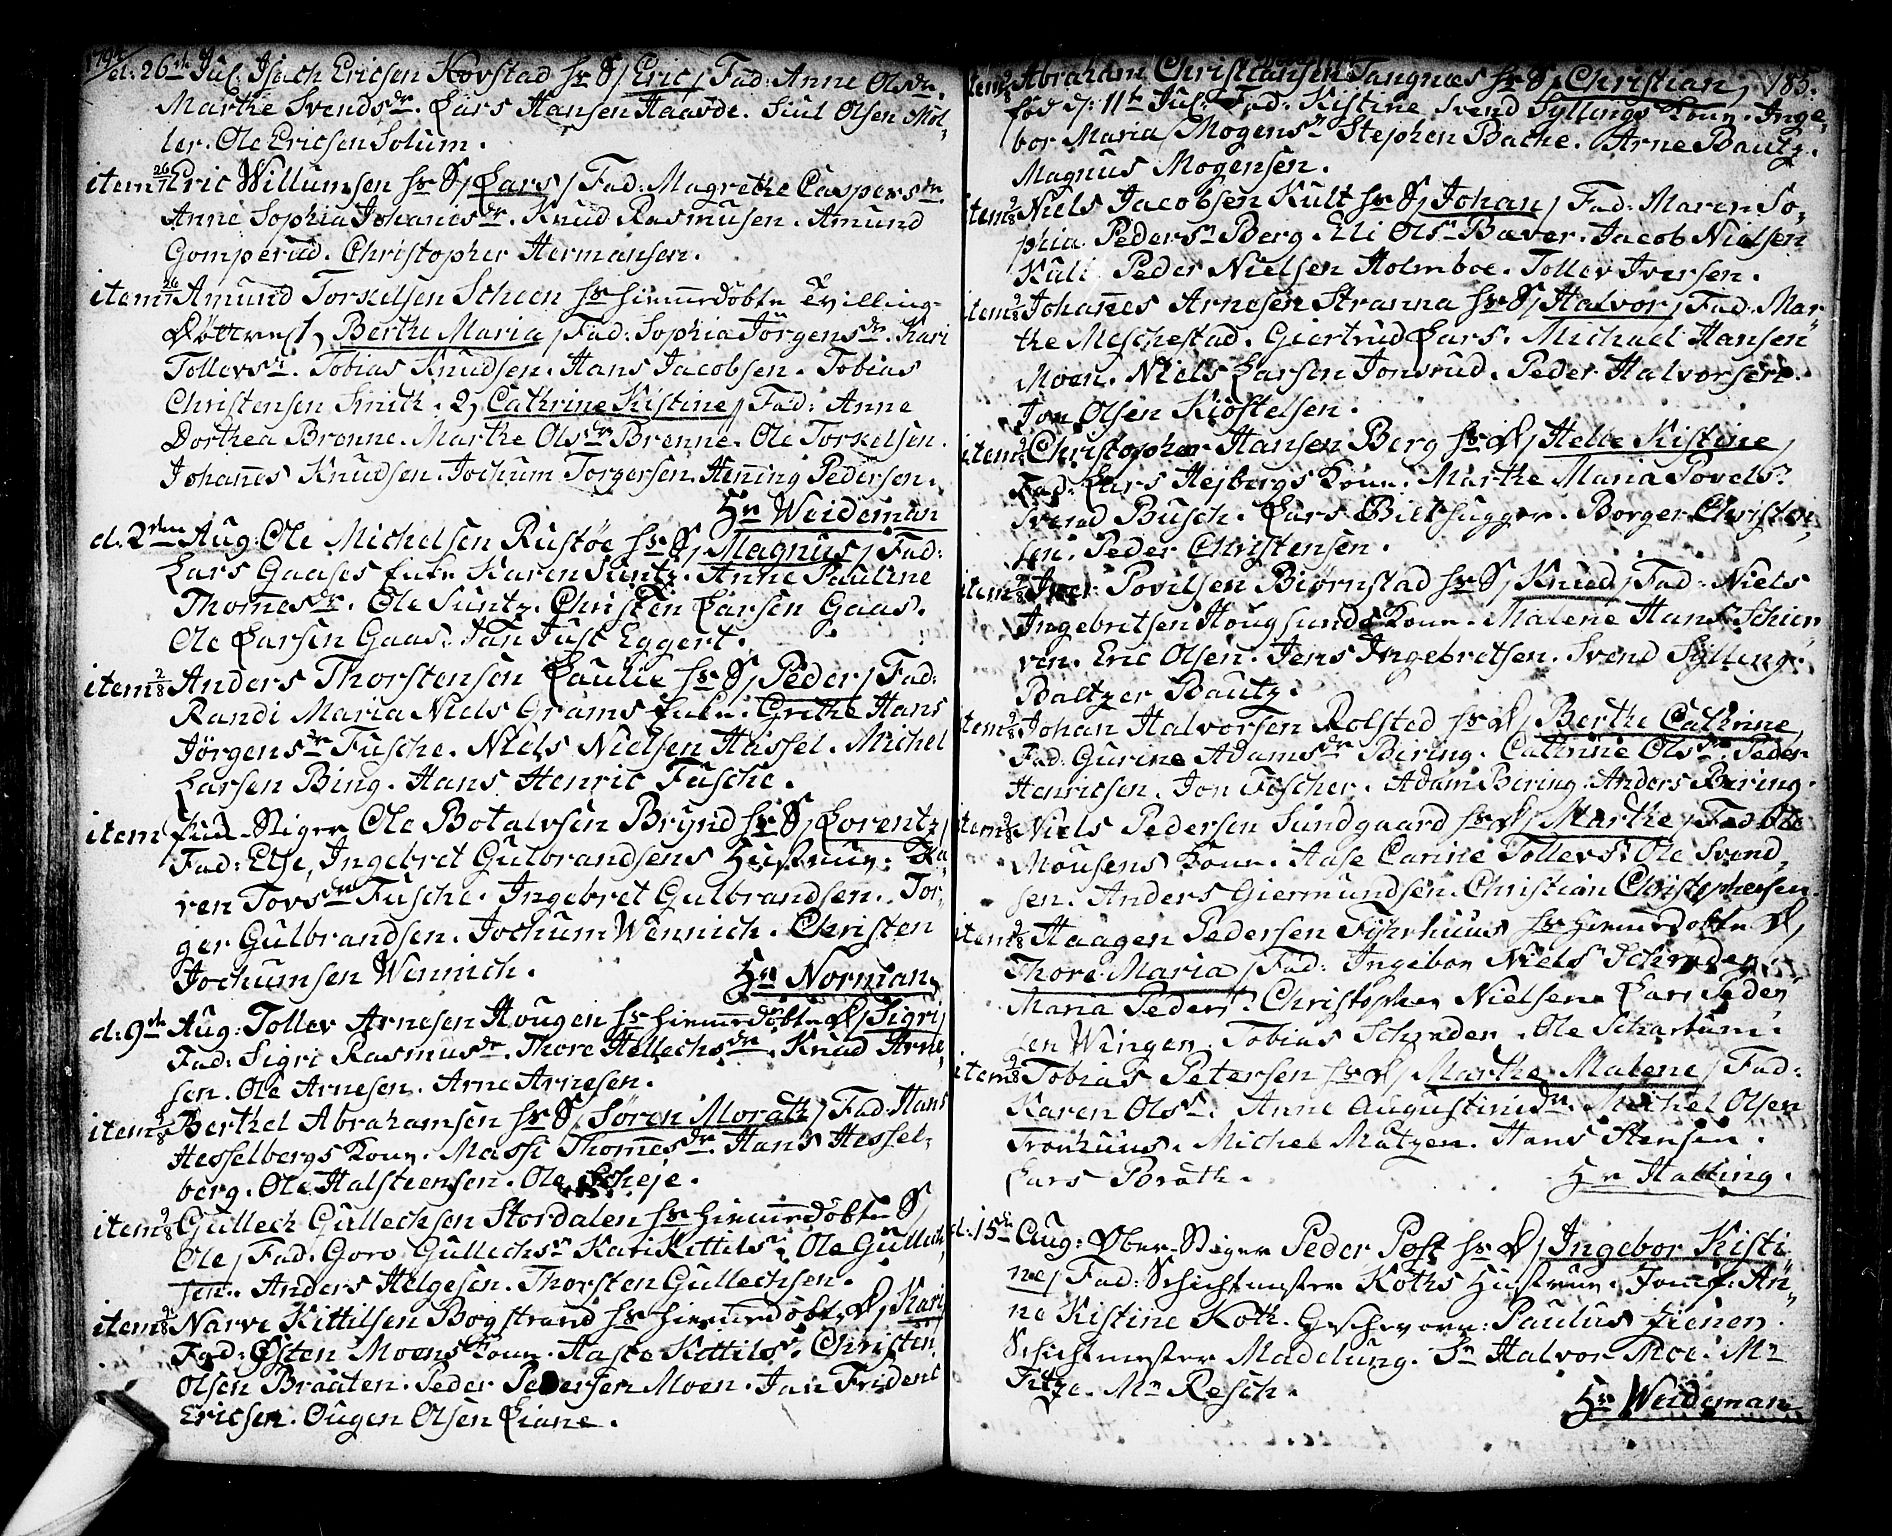 d: 26de Jul. Isach Ericsen Kovstad hr S/ Eric/ Fad: Anne Olsdr.
Marthe Svendsdr. Lars Hansen Haavde. Siul Olsen Møl-
ler. Ole Ericsen Solum.
item 26/7 Eric Willumsen hr S/ Lars/ Fad: Magrethe Caspersdr.
Anne Sophia Johanesdr. Knud Rasmusen. Amund
Gomperud. Christopher Hermansen.
item 26/7 Amund Torkelsen Scheen hr hiemmedøbte Tvilling-
Døttre 1, Berthe Maria/ Fad: Sophia Jørgensdr. Kari
Tollevsdr. Tobias Knudsen. Hans Jacobsen. Tobias
Christensen Smith. 2, Cathrine Kistine/ Fad: Anne
Dorthea Brenne. Marthe Olsdr Brenne. Ole Torkelsen.
Johannes Knudsen. Jochum Torgersen. Henning Pedersen.
Hr Weideman
d: 2den Aug: Ole Michelsen Rustøe hr S/ Magnus/ Fad:
Lars Gaases Enke Karen Suntz. Anne Pauline
Thomesdr. Ole Suntz. Christen Larsen Gaas.
Ole Larsen Gaas. Jan Just Eggert.
item 2/8 Anders Thorstensen Laulie hr S/ Peder/ Fad:
Randi Maria Niels Grams Enke. Grethe Hans
Jørgensdr Fusche. Niels Nielsen Hassel. Michel
Larsen Bing. Hans Henric Fusche.
item Stiger Ole Botalvsen Brynd hr S/ Lorentz/
Fad: Else, Ingebret Gulbrandsens Hustrue. Ka-
ren Tovsdr Fusche. Ingebret Gulbrandsen. Tor-
ger Gulbrandsen. Jochum Wennich. Christen
Jochumsen Wennich.
Hr Norman
d: 9de Aug: Tollev Arnesen Hougen hr hiemmedøbte D/ Sigri/
Fad: Sigri Rasmusdr. Thore Hellechsdr. Knud Arne-
sen. Ole Arnesen. Arne Arnesen.
item 9/8 Berthel Abrahamsen hr S/ Søren Morath/ Fad: Hans
Hesselbergs Kone. Massi Thomesdr. Hans Hessel-
berg. Ole Halsteensen. Ole Scheje.
item 9/8 Gullech Gullechsen Stordalen hr hiemmedøbte S/
Ole/ Fad: Goro Gullechsdr Kari Kittilsdr. Ole Gullech-
sen. Anders Helgesen. Thorsten Gullechsen.
item 9/8 Narve Kittilsen Bogstrand hr hiemmedøbte D/ Kari
Fad: Østen Moens Kone. Aaste Kittilsdr. Christen
Olsen Braaten. Peder Pedersen Moen. Jan Fridenc
Ericsen. Ougen Olsen Liane.
item 9/8 Abraham Christiansen Tangnæs hr S/ Christian, 185.
fød d: 11te Jul: Fad: Kistine Svend Syllings Kone. Inge-
bor Maria Mogensdr Stephen Bache. Arne Bautz.
Magnus Mogensen.
item 9/8 Niels Jacobsen Kult hr S/ Johan/ Fad: Maren So-
phia Pedersdr Berg. Eli Olsdr Bæver. Jacob Nielsen
Kult. Peder Nielsen Holmboe. Tollev Iversen.
item 9/8 Johannes Arnesen Stranna hr S/ Halvor/ Fad: Mar-
the Meschestad. Giertrud Lars. Michael Hansen
Moen. Niels Larsen Jonsrud. Peder Halvorsen.
Jon Olsen Kiøstelsen.
item 9/8 Christopher Hansen Berg hr D/ Helle Kistine/
Fad: Lars Hejbergs Kone. Marthe Maria Povelsdr
Svend Busch. Lars Bilthugger. Borger Christen-
sen. Peder Christensen.
item 9/8 Iver Povelsen Biørnstad hr S/ Knud/ Fad: Niels
Ingebritsen Hougsunds Kone. Malene Hans Schien
ven. Eric Olsen. Jens Ingebretsen. Svend Sylling.
Baltzer Bautz.
item 9/8 Johan Halvorsen Rolsted hr D/ Berthe Cathrine/
Fad: Gurine Adamsdr Bering. Cathrine Olsdr Peder
Henricsen. Jon Fischer. Adam Bering. Anders Bering.
item 9/8 Niels Pedersen Sundgaard hr D/ Marthe/ Fad: Ole
Mousens Kone. Aase Carine Tollevsdr. Ole Svend-
sen. Anders Giermundsen. Christian Christophersen
item 9/8 Haagen Pedersen Fyhrhuus hr hiemmedøbte D/
Thore Maria/ Fad: Ingebor Niels Schrøder.
Maria Pedersdr. Christopher Nielsen. Lars Peder
sen Wingen. Tobias Schrøder. Ole Schartum.
item 9/8 Tobias Petersen hr D/ Marthe Malene/ Fad:
Karen Olsdr. Anne Augustinusdr. Michel Olsen
Tronhuus. Michel Matzen. Hans Stensen.
Lars Borath.
Hr Halling.
d: 15de Aug: Ober-Stiger Peder Post hr D/ Ingebor Kisti-
ne/ Fad: Schichtmester Koths Hustrue. Jomf: An-
ne Kistine Koth. Geschworn: Paulus Ziener.
Schichtmester Madelung. Hr Halvor Moe. Mr
Titze. Mr Resch.
Hr Weideman